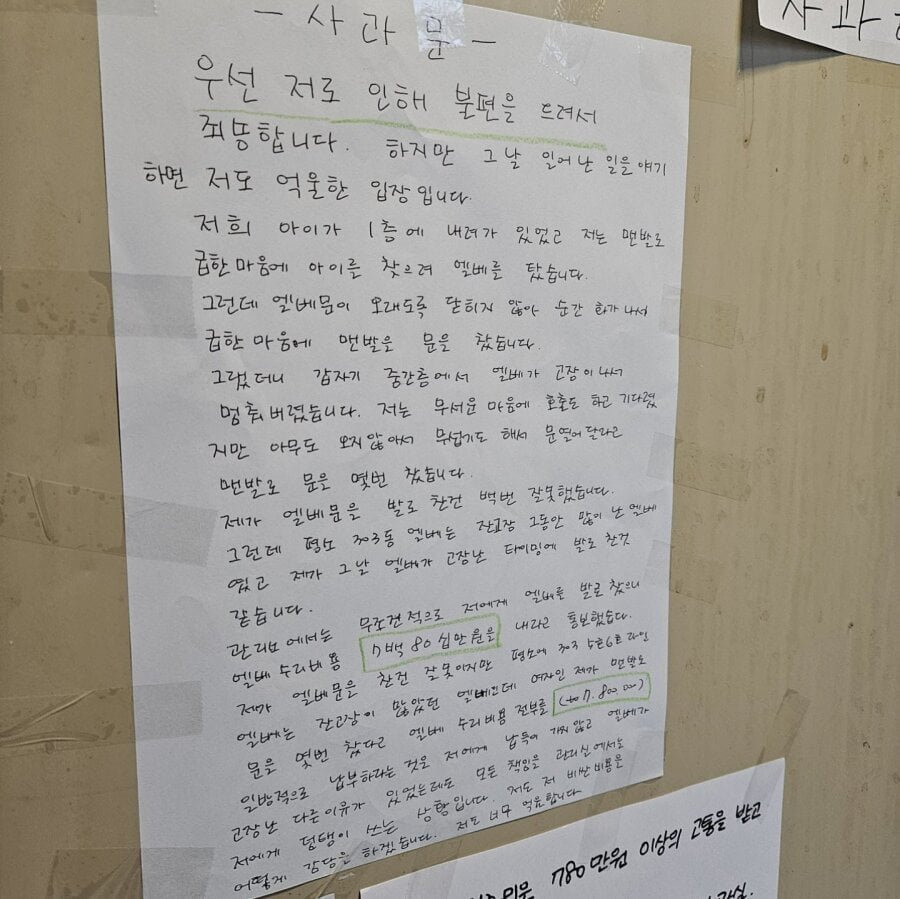 - 사 과 문 -
우선 저로 인해 불편을 드려서
죄송합니다. 하지만 그날 일어난 일을 얘기
하면 저도 억울한 입장입니다.
저희 아이가 1층에 내려가 있었고 저는 맨발로
급한마음에 아이를 찾으려 엘베를 탔습니다.
그런데 엘베문이 오래도록 닫히지 않아 순간 화가나서
급한마음에 맨발을 문을 찼습니다.
그랬더니 갑자기 중간층에서 엘베가 고장이나서
멈춰버렸습니다. 저는 무서운 마음에 호출도 하고 기다렸
지만 아무도 오지않아서 무섭기도 해서 문열어달라고
맨발로 문을 몇번 찼습니다.
제가 엘베문을 발로 찬건 백번 잘못했습니다.
그런데 평소 303동 엘베는 잔고장 그동안 많이 난 엘베
였고 제가 그날 엘베가 고장난 타이밍에 발로 찬것
같습니다.
관리소에서는 무조건적으로 저에게 엘베를 발로 찼으니
엘베 수리비용 7백 80 십만원을 내라고 통보했습니다.
제가 엘베문을 찬건 잘못이지만 평소에 303 라인
엘베는 잔고장이 많았던 엘베인데 여자인 제가 맨발로
문을 몇번 찼다고 엘베 수리비용 전부를
일방적으로 납부하라는 것은 저에게 납득이 가지않고 엘베가
고장난 다른이유가 있었는데도 모든 책임을 관리실에서는
저에게 덤탱이 쓰는 상황입니다. 저도 저 비싼비용을
어떻게 감당을 하겠습니다. 저도 너무 억울합니다
사과
780만원 이상의 고통을 받고